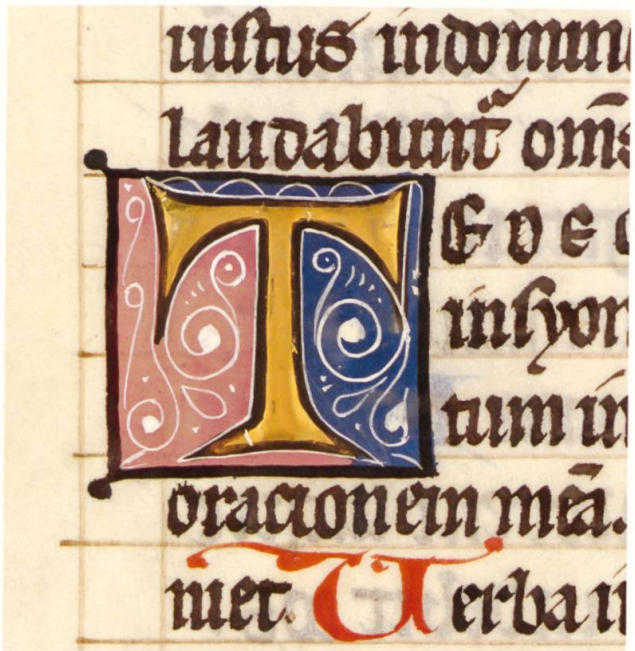 iustus in domin
laudabunt̃ om̄s
TE DEC
in syon
tum in
oracionem meā.
niet. Verba in